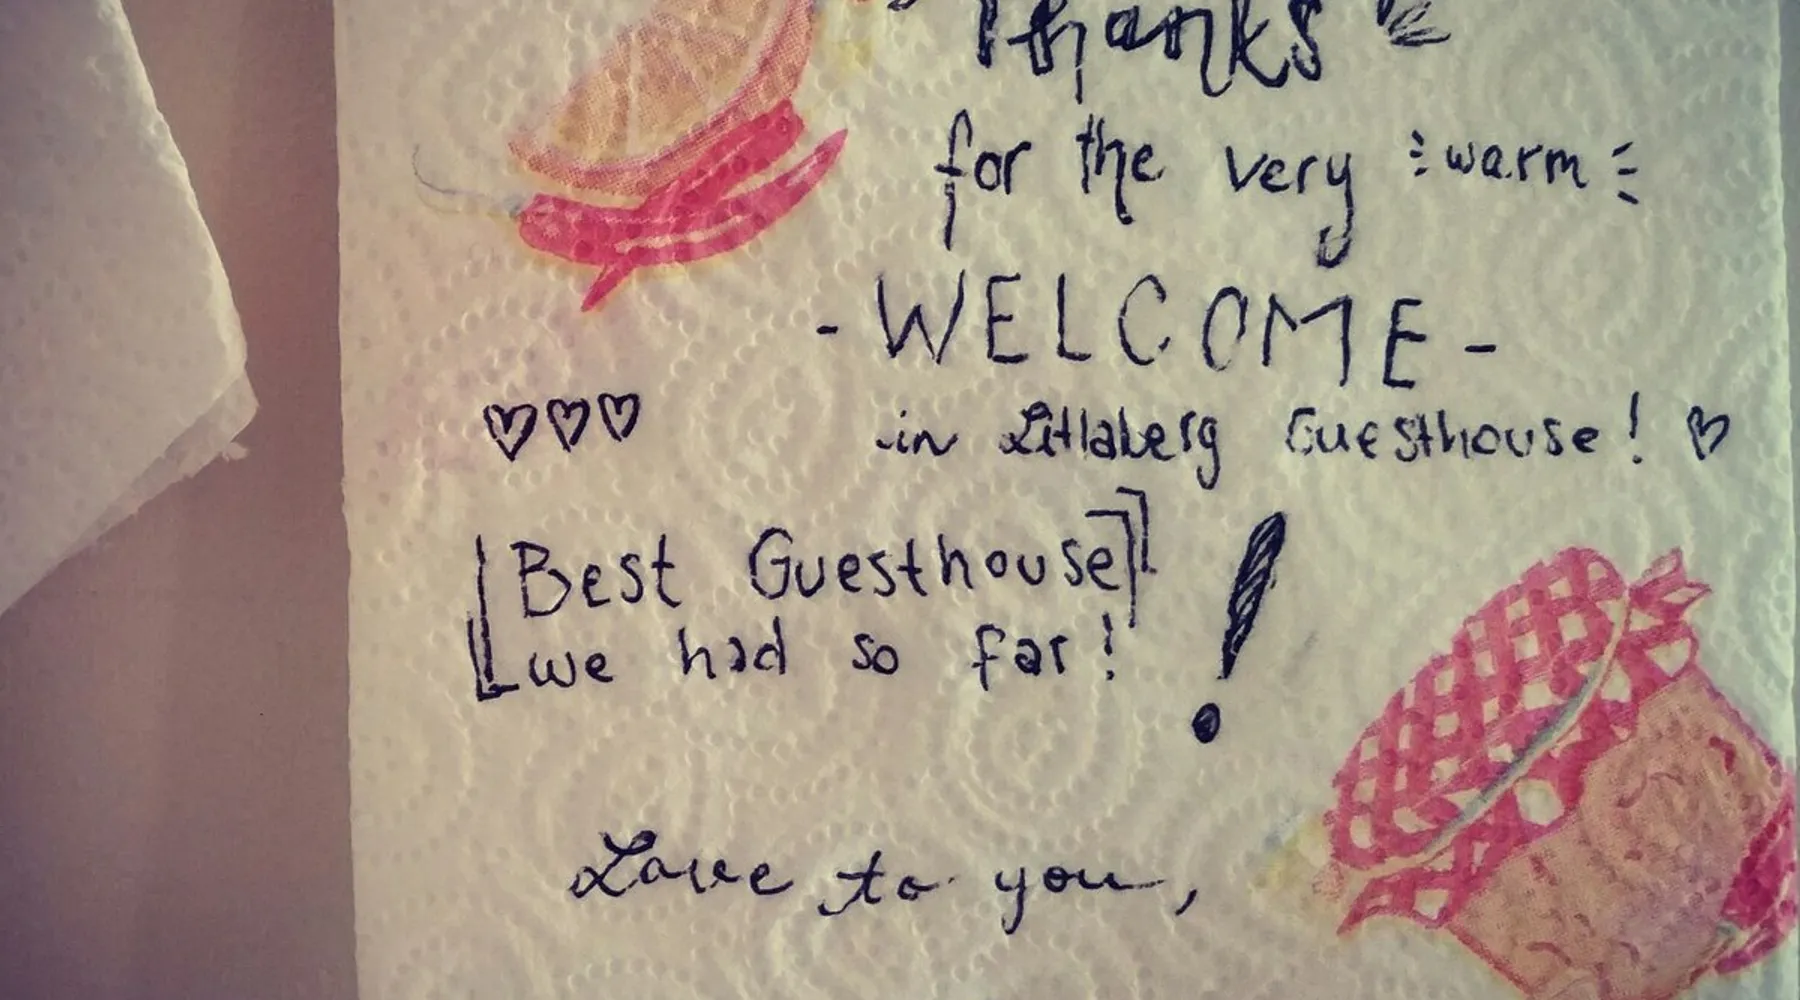 Thanks
for the very warm
- WELCOME -
in Litlaberg Guesthouse! ♡
♡♡♡
Best Guesthouse
we had so far!
!
Love to you,